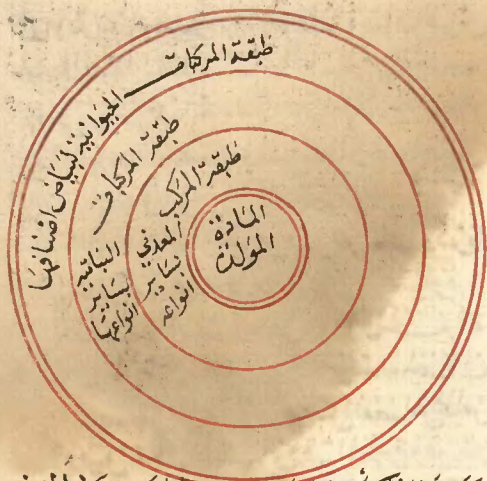 طبقة المركبات الحيوانية لسائر اصنافها
طبقة المركبات
النباتية
بسائر
انواعها
طبقة المركب
المعدني
بسائر
انواعه
المادة
المولدة